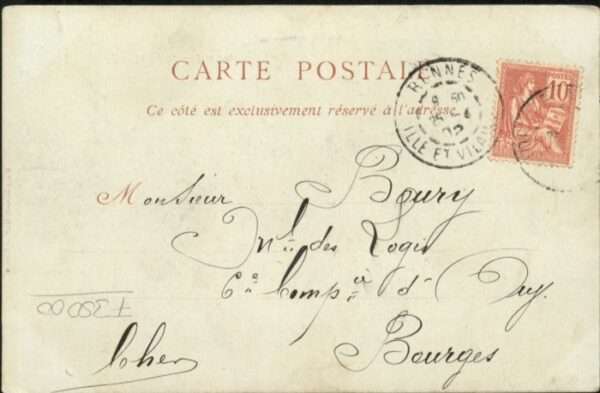 CARTE POSTALE
Ce côté est exclusivement réservé à l'adresse
RENNES
ILLE ET VILAINE
10
Monsieur Boury
Mal des Logis
6e Compie d'
Bourges
Cher